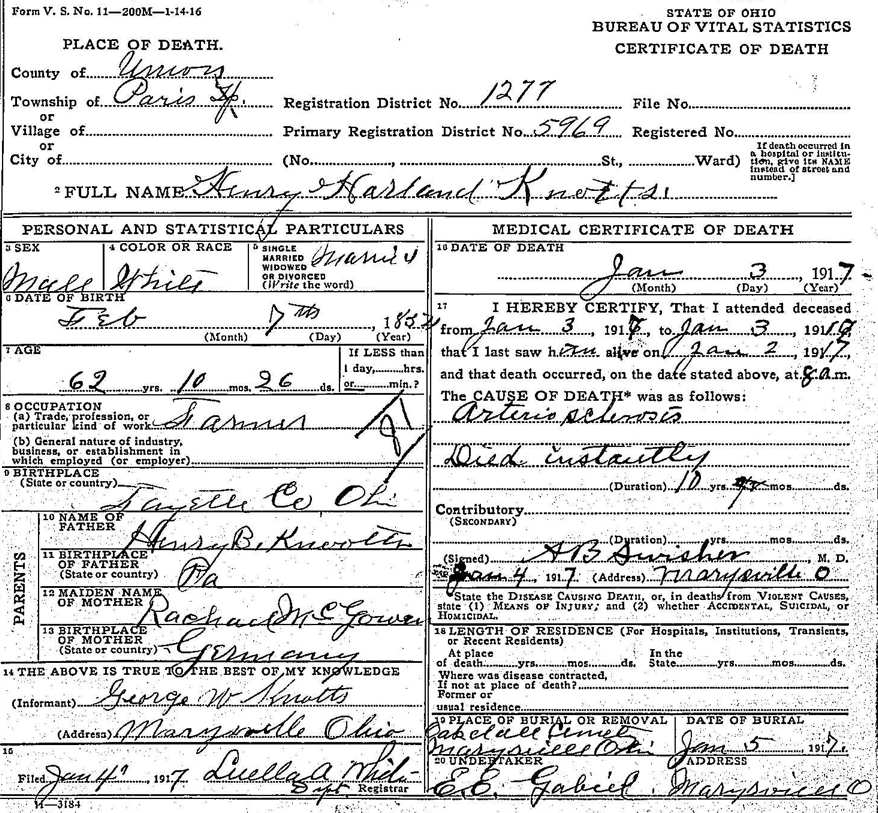 Form V. S. No. 11—200M—1-14-16
STATE OF OHIO
BUREAU OF VITAL STATISTICS
CERTIFICATE OF DEATH
PLACE OF DEATH.
County of Union
Township of Paris Tp. Registration District No. 1277 File No.
or
Village of Primary Registration District No. 5969 Registered No.
or
City of (No. , St., Ward)
If death occurred in
a hospital or institu-
tion, give its NAME
instead of street and
number.]
2 FULL NAME Henry Harland Knotts.
PERSONAL AND STATISTICAL PARTICULARS
3 SEX
Male
4 COLOR OR RACE
White
5 SINGLE
MARRIED
WIDOWED
OR DIVORCED
(Write the word)
Married
6 DATE OF BIRTH
Feb 7th, 185
(Month) (Day) (Year)
7 AGE
62 yrs. 10 mos. 26 ds.
If LESS than
1 day, hrs.
or min.?
8 OCCUPATION
(a) Trade, profession, or
particular kind of work Farmer
(b) General nature of industry,
business, or establishment in
which employed (or employer)
81
9 BIRTHPLACE
(State or country)
Fayette Co, Ohi
PARENTS
10 NAME OF
FATHER
Henry B. Knotts
11 BIRTHPLACE
OF FATHER
(State or country)
Pa
12 MAIDEN NAME
OF MOTHER
Rachael McGowen
13 BIRTHPLACE
OF MOTHER
(State or country)
Germany
14 THE ABOVE IS TRUE TO THE BEST OF MY KNOWLEDGE
(Informant) George W Knotts
(Address) Marysville Ohio
15
Filed Jan 4, 1917 Luella A
Dept. Registrar
11—3184
MEDICAL CERTIFICATE OF DEATH
16 DATE OF DEATH
Jan 3, 1917
(Month) (Day) (Year)
17 I HEREBY CERTIFY, That I attended deceased
from Jan 3, 1917, to Jan 3, 1917,
that I last saw him alive on Jan 2, 1917,
and that death occurred, on the date stated above, at 8 a.m.
The CAUSE OF DEATH* was as follows:
Arterio sclerosis
Died instantly
(Duration) 10 yrs. mos. ds.
Contributory
(SECONDARY)
(Duration) yrs. mos. ds.
(Signed) A B Swisher, M. D.
Jan 4, 1917 (Address) Marysville O
State the DISEASE CAUSING DEATH, or, in deaths from VIOLENT CAUSES,
state (1) MEANS OF INJURY; and (2) whether ACCIDENTAL, SUICIDAL, or
HOMICIDAL.
18 LENGTH OF RESIDENCE (For Hospitals, Institutions, Transients,
or Recent Residents)
At place
of death yrs. mos. ds.
In the
State yrs. mos. ds.
Where was disease contracted,
If not at place of death?
Former or
usual residence
19 PLACE OF BURIAL OR REMOVAL
Oakdale Cemet
Marysville Ohi
DATE OF BURIAL
Jan 5, 1917.
20 UNDERTAKER
E.E. Gabriel.
ADDRESS
Marysville O